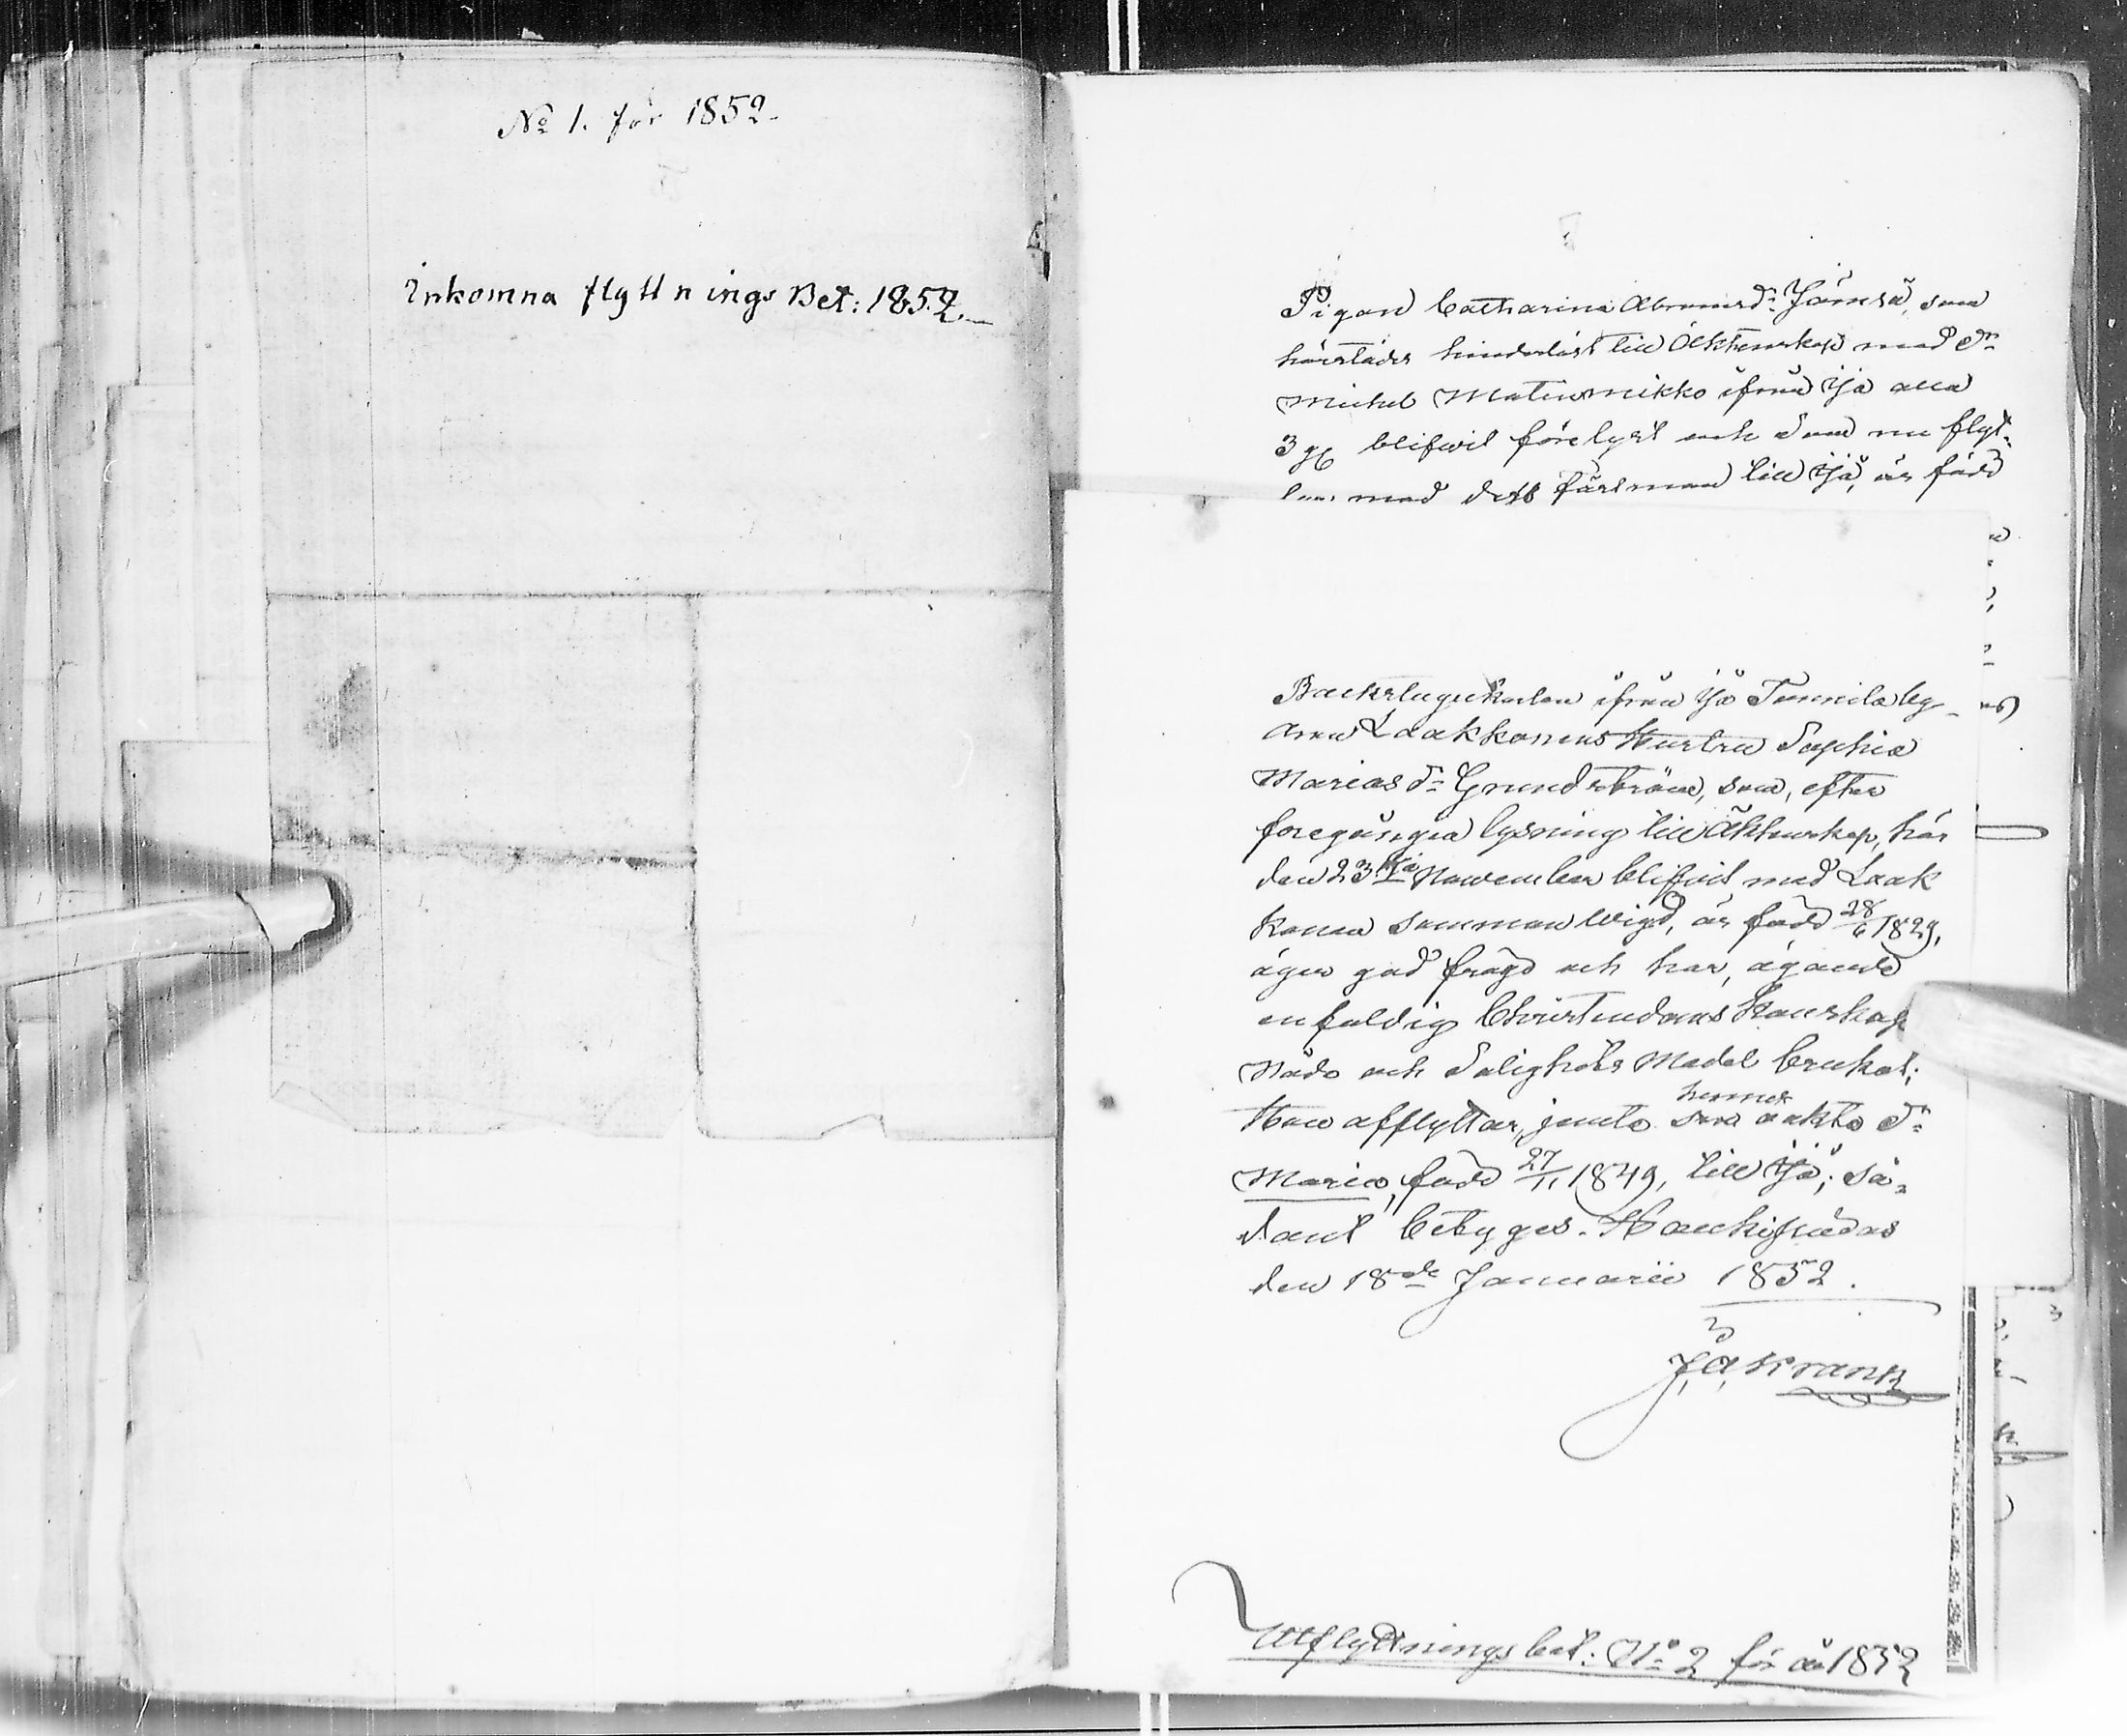 No 1. för 1852.
Inkomna flyttnings Bet: 1852.
Pigan Catharina Abramsdr Jämsä, som
härstädes hinderlöst till Äktenskap med Dn
Michel Matinmikko ifrån Ijo alla
3 gr blifwit förelyst och som nu flyt-
med dess fästman till Ijo, är född
Backstugukarlen ifrån Ijo Tannila by
Laakkonens Hustru Sophia
Mariasdr Grundström, som, efter
föregångna lysning till Äktenskap, här
den 23dje November blifwit med Laak
konen sammanwigd, är född 28/6 1829,
äger god frägd och har, ägande
enfaldig Christendoms Kunskap
Nådo och Salighets Medel brukat;
Hon afflyttar, jemte hennes oäkta dr
Maria, född 27/11 1849, till Ijo; så-
dant betygas. Haukipudas
den 18de Januarii 1852.
J. A. Krank
Utflyttnings bet: No 2 för år 1852